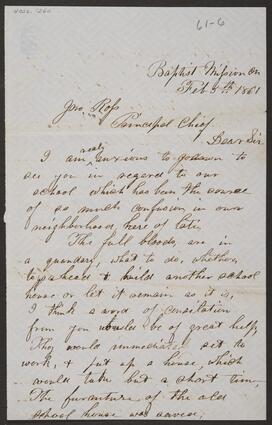 4026.1260
61-6
Baptist Mission C.N.
Feb 8th 1861
Jno. Ross
Principal Chief
Dear Sir
I am realy anxious to go down to
see you in regard to our
school which has been the cause
of so much confusion in our
neighborhood here of late.
The full bloods, are in
a quandery, what to do, whether
to go ahead & build another school
house or let it remain as it is,
I think a word of consilation
from you would be of great help,
They would immediately set to
work, & put up a house, which
would take but a short time,
The furnature of the old
school house was saved;